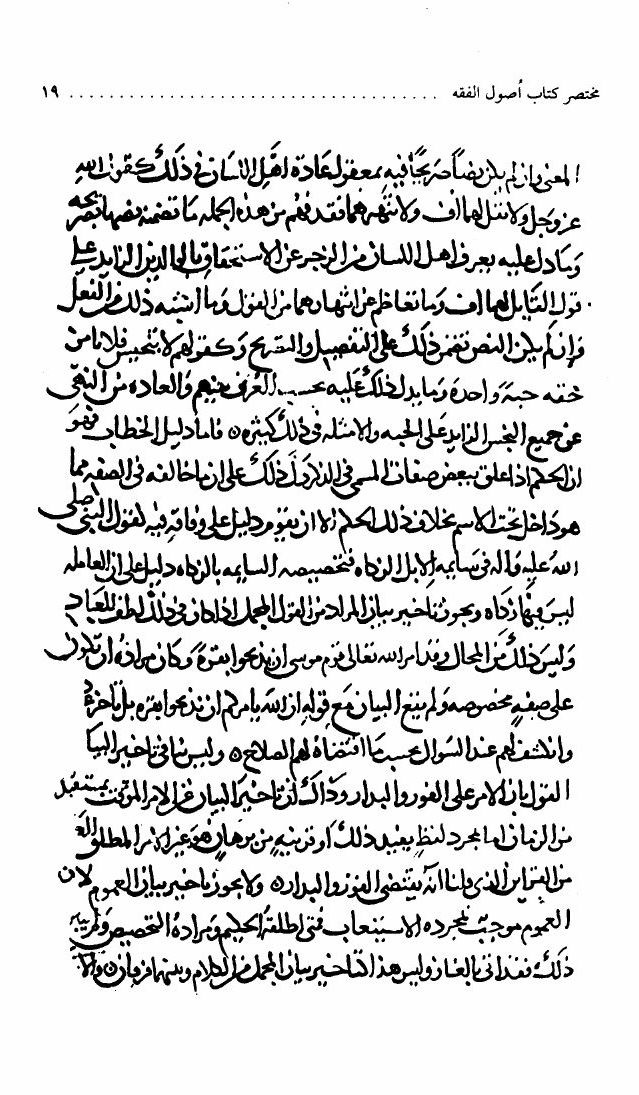 مختصر كتاب أصول الفقه ........................................ ١٩
المعنى وان لم يكن نصا صريحا فيه بمعقول عادة اهل اللسان في ذلك كقول الله
عز وجل ولا تقل لهما اف ولا تنهرهما فقد فهم من هذه الجملة ما تضمنه نصها بصريحه
وما دل عليه بعرف اهل اللسان من الزجر عن الاستحقاق بالوالدين الزايد على
قول القايل لهما اف وما تعاظم عن انتهارهما من القول وما اشبه ذلك من الفعل
وان لم يكن النص تضمن ذلك على التفصيل والتصريح وكقولهم لا تبخس فلانا من
حقه حبة واحدة وما يدل ذلك عليه بحسب العرف بينهم والعادة من النهي
عن جميع البخس الزايد على الحبه والامثله في ذلك كثيرة ٥ فاما دليل الخطاب فهو
ان الحكم اذا علق ببعض صفات المسمى في الذكر دل ذلك على ان ما خالفه في الصفه مما
هو داخل تحت الاسم بخلاف ذلك الحكم الا ان يقوم دليل على وفاقه فيه كقول النبي صلى
الله عليه واله في سايمه الابل الزكاه فتخصيصه السايمه بالزكاه دليل على ان العامله
ليس فيها زكاه ويجوز تاخير بيان المراد من القول المجمل اذا كان في ذلك لطف للعباد
وليس ذلك من المحال وقد امر الله تعالى قوم موسى ان يذبحوا بقرة وكان مراده ان تكون
على صفه مخصوصه ولم يقع البيان مع قوله ان الله يامركم ان تذبحوا بقره بل تاخر ذلك
وانكشف لهم عند السوال بحسب ما اقتضاه لهم الصلاح ٥ وليس ينافي تاخير البيان
القول بان الامر على الفور والبدار وذاك ان تاخير البيان عن الامر الموقت بمستقبل
من الزمان اما بمجرد لفظ يفيد ذلك او قرينه من برهان هو غير الامر المطلق العري
من القراين الذي قلنا انه يقتضي الفور والبدار ٥ ولا يجوز تاخير بيان العموم لان
العموم موجب بمجرده الاستيعاب فمتى اطلقه الحكيم ومراده التخصيص ولم يبين
ذلك فقد اتى بالغاز وليس هذا كتاخير بيان المجمل من الكلام وبينهما فرقان ٥ والا